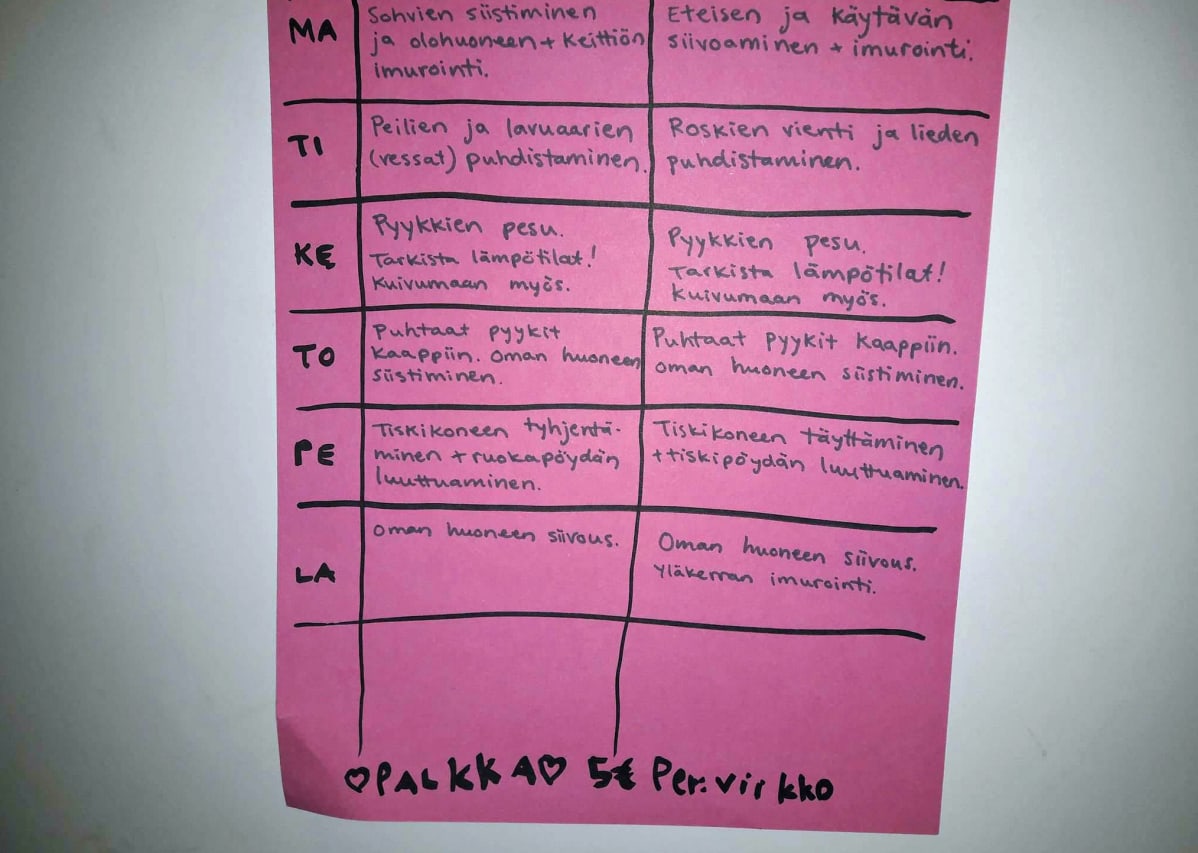 MA
Sohvien siistiminen
ja olohuoneen + keittiön
imurointi.
Eteisen ja käytävän
siivoaminen + imurointi.
TI
Peilien ja lavuaarien
(vessat) puhdistaminen.
Roskien vienti ja lieden
puhdistaminen.
KE
Pyykkien pesu.
Tarkista lämpötilat!
Kuivumaan myös.
Pyykkien pesu.
Tarkista lämpötilat!
Kuivumaan myös.
TO
Puhtaat pyykit
kaappiin. Oman huoneen
siistiminen.
Puhtaat pyykit kaappiin.
Oman huoneen siistiminen.
PE
Tiskikoneen tyhjentä-
minen + ruokapöydän
luuttuaminen.
Tiskikoneen täyttäminen
+ tiskipöydän luuttuaminen.
LA
Oman huoneen siivous.
Oman huoneen siivous.
Yläkerran imurointi.
♡PALKKA♡ 5€ Per.virkko